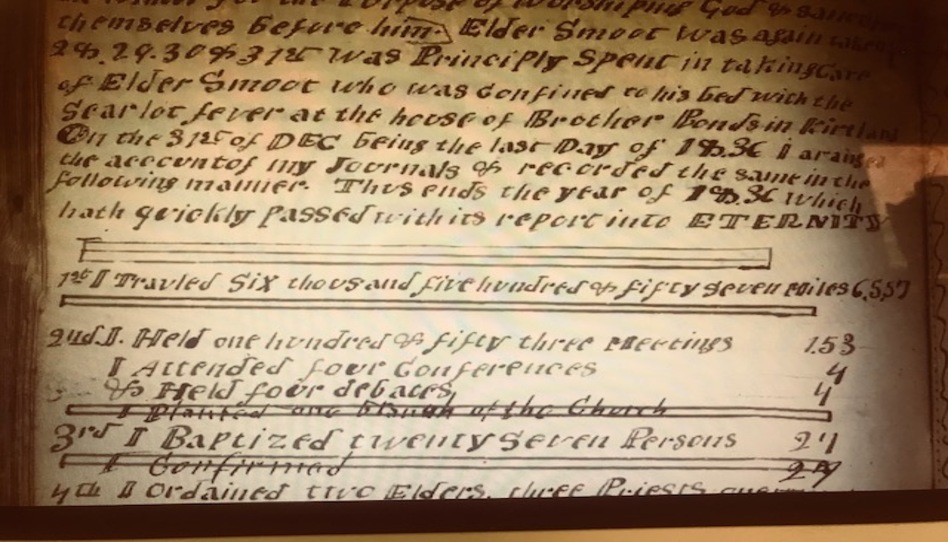 the Purpose of Worshiping God &
themselves before him. Elder Smoot was again taken
28. 29. 30 & 31st was Principly Spent in taking Care
of Elder Smoot who was Confined to his bed with the
Scarlot fever at the house of Brother Bonds in Kirtland
On the 31st of DEC being the last Day of 1836 I araing
the account of my Journals & recorded the same in the
following manner. Thus ends the year of 1836 which
hath quickly Passed with its report into ETERNITY
1st I Travled Six thousand five hundred & fifty seven miles 6,557
2nd I. Held one hundred & fifty three Meetings 153
I Attended four Conferences 4
& Held four debates, 4
I Planted one branch of the Church
3rd I Baptized twenty Seven Persons 27
I Confirmed
4th I Ordained two Elders, three Priests